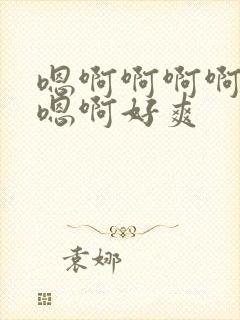 嗯啊啊啊啊
嗯啊好爽
袁娜